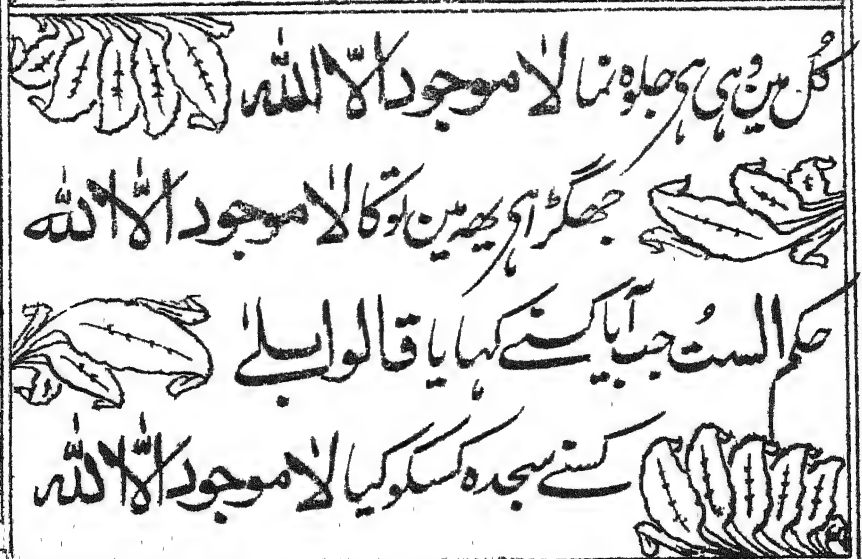 کُل مین وُہی ہی جلوہ نما لا موجود الّا اللّٰه
جھگڑا ہی یھہ مین تو کا لا موجود الّا اللّٰه
حکم الستُ جب آیا کسنے کہا یا قالوا بلیٰ
کسنے سجدہ کسکو کیا لا موجود الّا اللّٰه